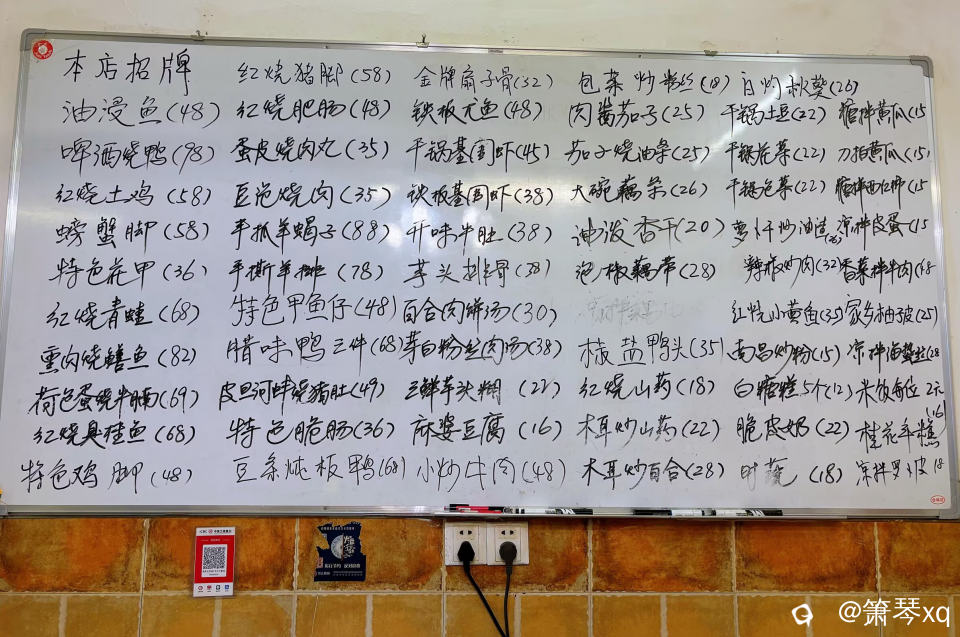 本店招牌
油浸鱼(48)
啤酒烧鸭(98)
红烧土鸡(58)
螃蟹脚(58)
特色花甲(36)
红烧青蛙(68)
熏肉烧鳝鱼(82)
荷包蛋烧牛腩(69)
红烧臭桂鱼(68)
特色鸡脚(48)
红烧猪脚(58)
红烧肥肠(48)
蛋皮烧肉丸(35)
豆泡烧肉(35)
手抓羊蝎子(88)
手撕羊排(78)
特色甲鱼仔(48)
腊味鸭三件(68)
皮旦河蚌烧猪肚(49)
特色脆肠(36)
豆条炖板鸭(68)
金牌扇子骨(32)
铁板尤鱼(48)
干锅基围虾(45)
铁板基围虾(38)
开味牛肚(38)
芋头排骨(38)
百合肉饼汤(30)
茶白粉丝肉汤(38)
三鲜芋头糊(22)
麻婆豆腐(16)
小炒牛肉(48)
包菜炒粉丝(18)
肉酱茄子(25)
茄子烧油条(25)
大碗藕条(26)
油泼香干(20)
泡椒藕带(28)
椒盐鸭头(35)
红烧山药(18)
木耳炒山药(22)
木耳炒百合(28)
白灼秋葵(26)
干锅土豆(22)
干锅花菜(22)
干锅包菜(22)
萝卜干炒油渣
辣椒炒肉(32)
红烧小黄鱼(35)
南昌炒粉(15)
白糖糕5个(12)
脆皮奶(22)
时蔬(18)
糖拌黄瓜(15
刀拍黄瓜(15)
糖拌西红柿(15
凉拌皮蛋(15
香菜拌牛肉(68
家乡柚子皮(25)
凉拌海蜇丝(28
米饭每位2元
桂花年糕(16)
凉拌
18
@箫琴xq